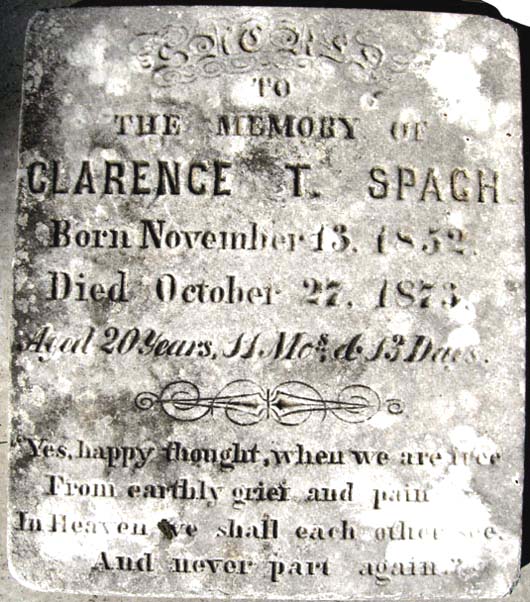 SACRED
TO
THE MEMORY OF
CLARENCE T. SPACH.
Born November 13, 1852.
Died October 27, 1873.
Aged 20 Years, 11 Mos. & 13 Days.
"Yes, happy thought, when we are free
From earthly grief and pain
In Heaven we shall each other see,
And never part again."